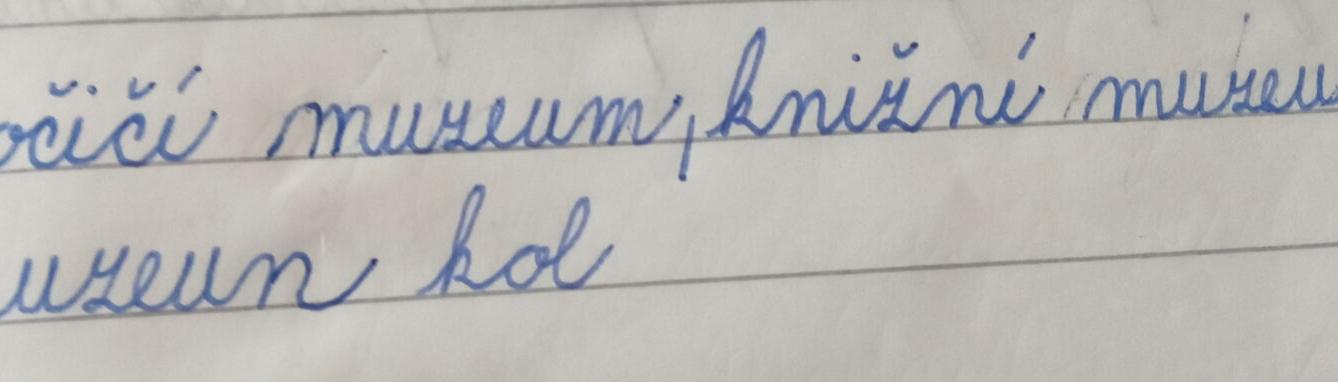 očičí muzeum, knižní muzeu
uzeun kol